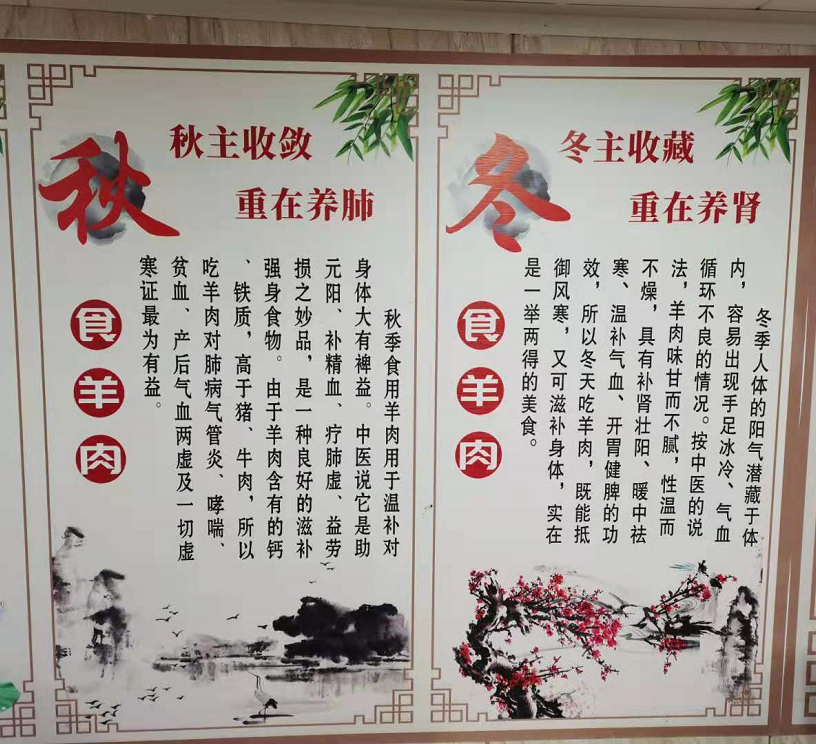 秋
秋主收敛
重在养肺
食羊肉
秋季食用羊肉用于温补对
身体大有裨益。中医说它是助
元阳、补精血、疗肺虚、益劳
损之妙品，是一种良好的滋补
强身食物。由于羊肉含有的钙
、铁质，高于猪、牛肉，所以
吃羊肉对肺病气管炎、哮喘、
贫血、产后气血两虚及一切虚
寒证最为有益。
冬
冬主收藏
重在养肾
食羊肉
冬季人体的阳气潜藏于体
内，容易出现手足冰冷、气血
循环不良的情况。按中医的说
法，羊肉味甘而不腻，性温而
不燥，具有补肾壮阳、暖中祛
寒、温补气血、开胃健脾的功
效，所以冬天吃羊肉，既能抵
御风寒，又可滋补身体，实在
是一举两得的美食。